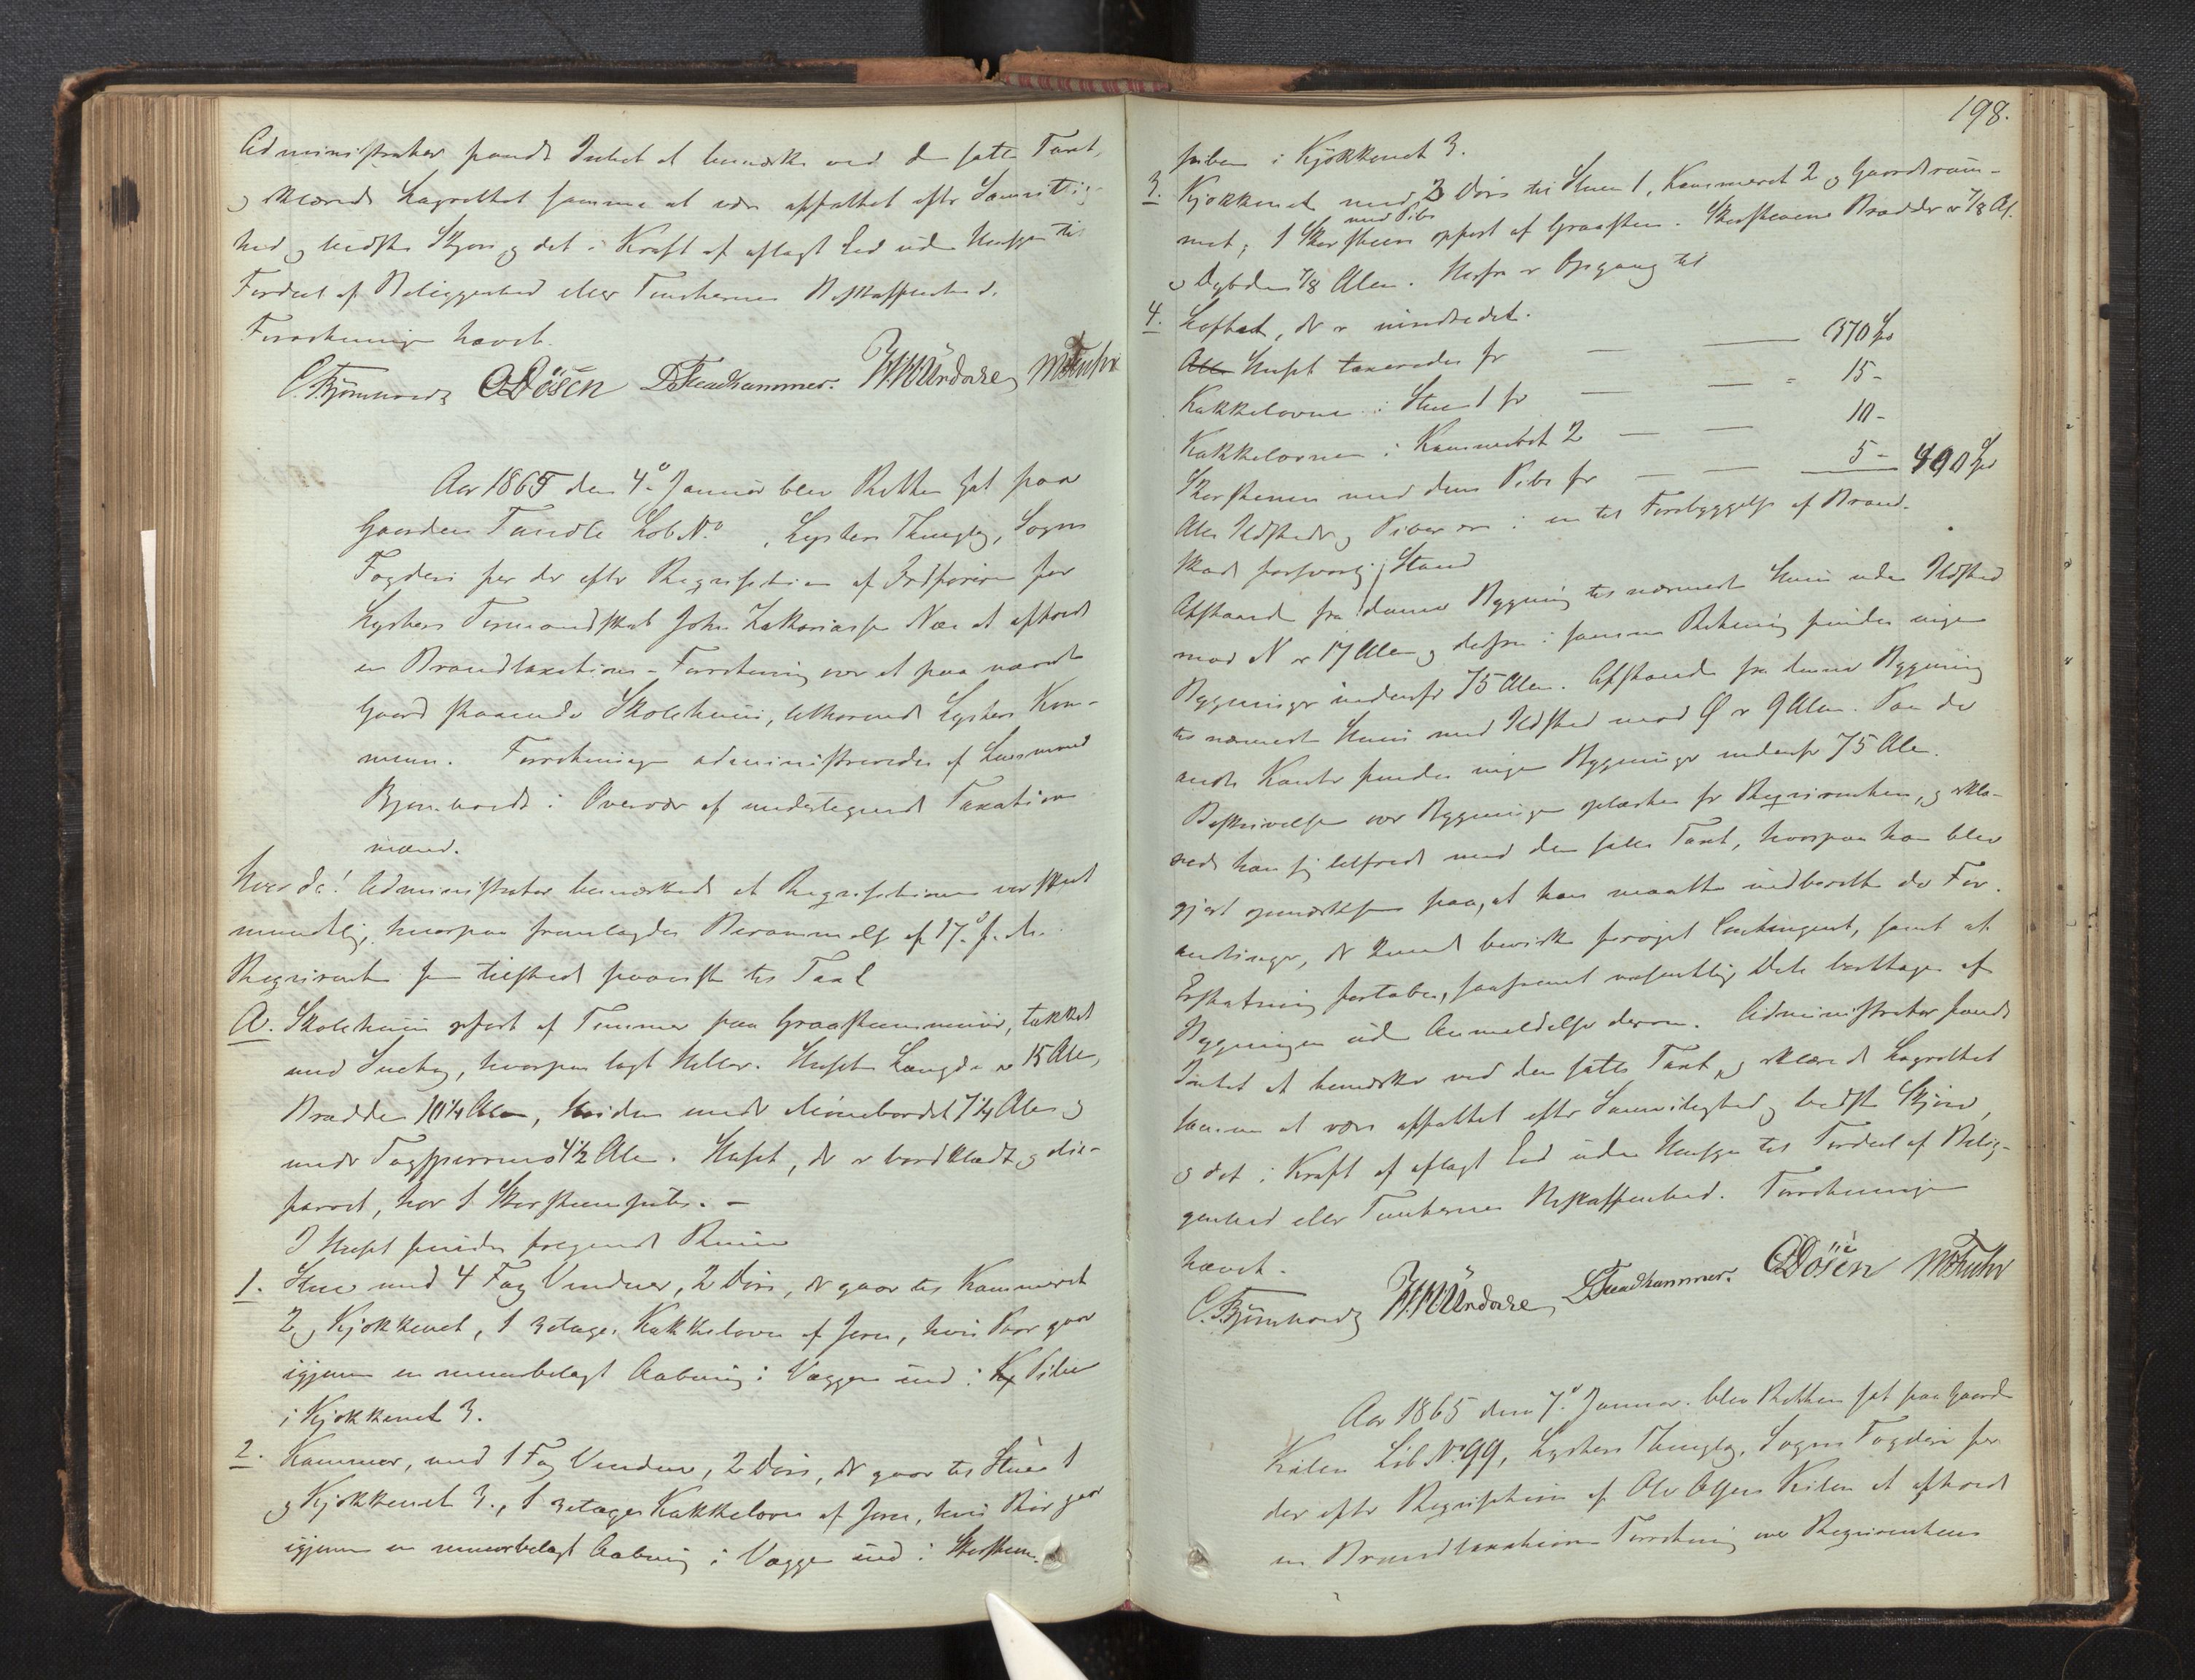 Administrator fandt Intet at bemærke ved den satte Taxt,
og erklærede Lagrettet samme at være affattet efter Samvittig-
hed og bedste Skjøn og det i Kraft af aflagt Eed uden Hensyn til
Fordeel af Beliggenhed eller Tomternes Beskaffenhed.
Forretningen hævet.
C. Bjørnhordt O Døsen D. Teadhammer. H. H. Undahl M Fuhr
Aar 1865 den 4de Januar blev Retten sat paa
Gaarden Tandle Løb No , Lysters Thinglag, Sogns
Fogderi for der efter Reqvisition af Ordføreren for
Lysters Formandskab John Zakariassen Næs at afholde
en Brandtaxations-Forretning over et paa nævnte
Gaard staaende Skolehuus, tilhørende Lysters Kom-
mune. Forretningen administreredes af Lensmand
Bjørnhordt i Overvær af undertegnede Taxations
mænd.
Hvor da! Administrator bemærkede at Reqvisitionen var skeet
mundtlig, hvorpaa fremlagdes Berammelse af 17de f. M.
Reqvirenten som tilstede paaviste til Taxt
A. Skolehuus opført af Tømmer paa Graasteensmuur, tækket
med Sutag, hvorpaa lagt Heller. Husets Længde er 15 Alen,
Bredde 10 1/4 Alen, Høiden under Mønebordet 7 1/4 Alen og
under Tagsperrerne 4 1/2 Alen. Huset, der er bordklædt og olie-
farvet, har 1 Skorsteenspibe. -
I Huset findes følgende Rum
1. Stue med 4 Fag Vinduer, 2 Døre, der gaar til Kammeret
2 og Kjøkkenet, 1 3 etages Kakkelovn af Jern, hvis Rør gaar
igjennem en muurbelagt Aabning i Væggen ind i Piben
i Kjøkkenet 3.
2. Kammer, med 1 Fag Vinduer, 2 Døre, der gaar til Stuen 1
og Kjøkkenet 3., 1 3 etages Kakkelovn af Jern, hvis Rør gaar
igjennem en muurbelagt Aabning i Væggen ind i Skorsteens-
198.
piben i Kjøkkenet 3.
3. Kjøkkenet med 3 Døre til Stuen 1, Kammeret 2 og Gaardsrum-
met, 1 Skorsteen med Pibe opført af Graasteen. Skorstenens Bredde er 7/8 Al.
og Dybden 7/8 Alen. Herfra er Opgang til
4. Loftet, der er uindredet.
Huset taxeredes for — — 370 Spd
Kakkelovnen i Stuen 1 for — — - 15 -
Kakkelovnen i Kammeret 2 — — 10 -
Skorstenen med dens Pibe for — — 5 - 400 Spd
Alle Ildsteder og Piber ere i en til Forebyggelse af Brand-
skade forsvarlig Stand
Afstanden fra denne Bygning til nærmeste Huus uden Ildsted
mod N er 17 Alen og desfra i samme Retning findes ingen
Bygninger indenfor 75 Alen. Afstanden fra denne Bygning
til nærmeste Huus med Ildsted mod Ø er 9 Alen. Paa de
andre Kanter findes ingen Bygninger indenfor 75 Alen.
Beskrivelsen over Bygningen oplæstes for Reqvirenten, og erklæ-
rede han sig tilfreds med den satte Taxt, hvorpaa han blev
gjort opmærksom paa, at han maatte indberette de For-
andringer, der kunde bevirke forøget Contingent, samt at
Erstatning fortabes, saafremt væsentlige Dele borttages af
Bygningen uden Anmeldelse derom. Administrator fandt
Intet at bemærke ved den satte Taxt, og erklærede Lagrettet
samme at være affattet efter Samvittighed og bedste Skjøn,
og det i Kraft af aflagt Eed uden Hensyn til Fordeel af Belig-
genhed eller Tomternes Beskaffenhed. Forretningen
hævet.
C. Bjørnhordt H. H. Undahl D. Teadhammer. O Døsen M Fuhr
Aar 1865 den 7de Januar. blev Retten sat paa Gaard
Kilen Løb No 99, Lysters Thinglag, Sogns Fogderi for
der efter Reqvisition af Ole Olsen Kilen at afholde
en Brandtaxations Forretning over Reqvirentens